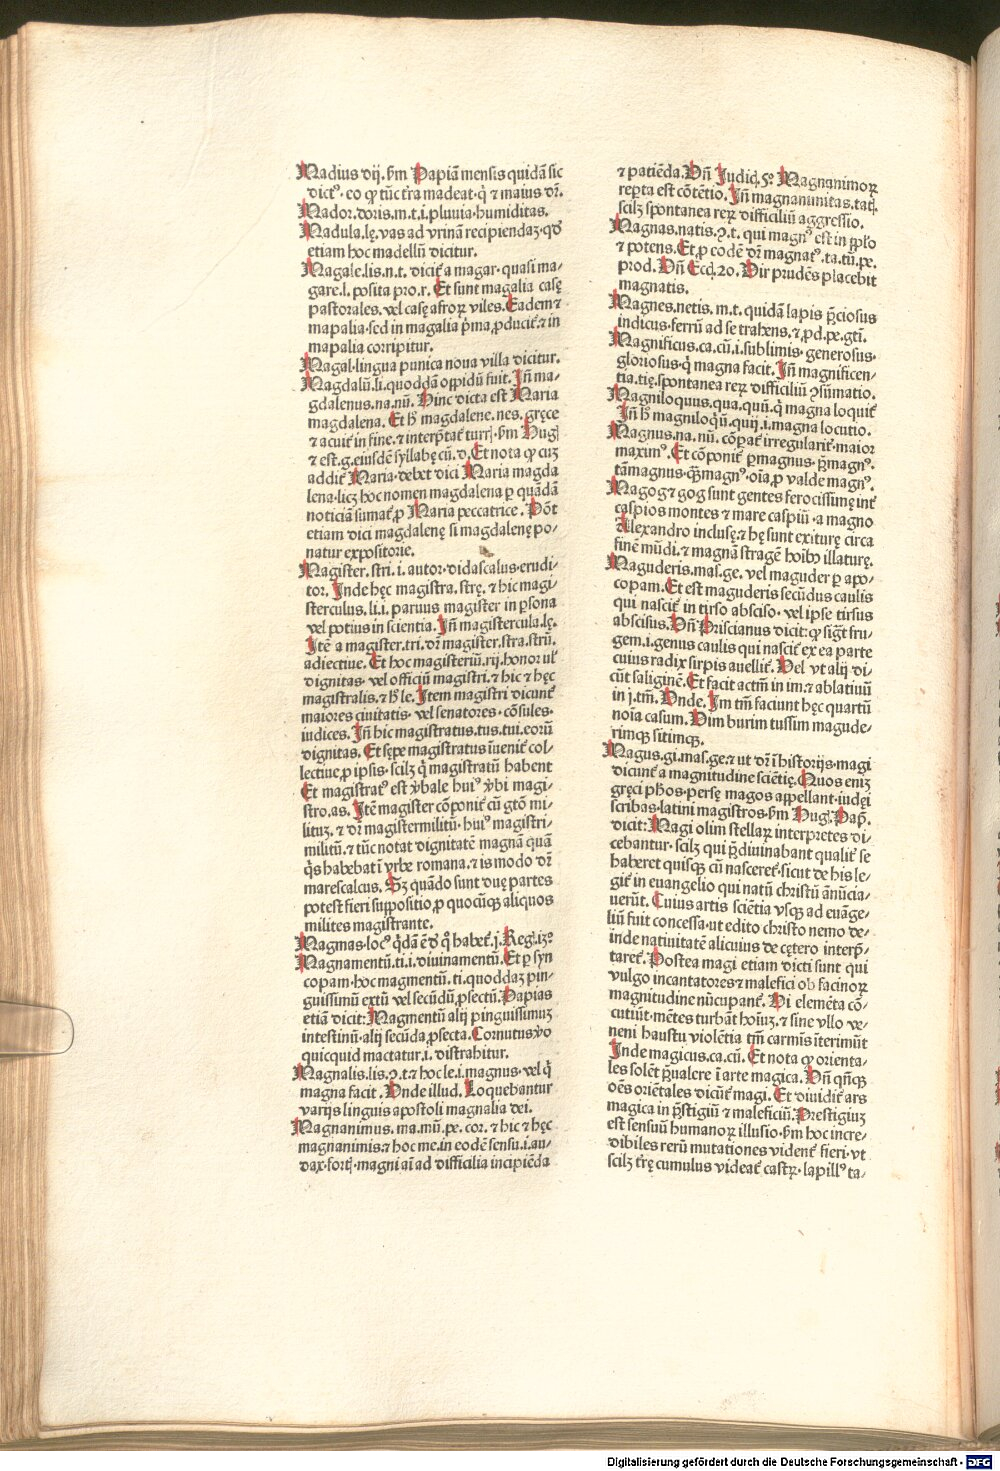 Madius dij. ẜm Papiā mensis quidā sic
dictꝰ · eo ꝙ tūc t̄ra madeat · q̇ & maius dr̄.
Mador.doris.m.t.i.pluuia · humiditas.
Madula.lę.vas ad vrinā recipiendaȝ · qd̄
etiam hoc madellū dicitur.
Magale.lis.n.t. dicit̄ a magar · quasi ma-
gare.l. posita pro.r. Et sunt magalia casę
pastorales. vel casę afroꝝ viles. Eadem &
mapalia · sed in magalia p̄ma ꝓducit̄ · & in
mapalia corripitur.
Magal · lingua punica noua villa dicitur.
Magdalū.li.quoddā oppidū fuit. Jn̄ ma-
gdalenus.na.nū. Hinc dicta est Maria
magdalena. Et h̄ magdalene.nes. gręce
& acuit̄ in fine. & interp̄tat̄ turrj · ẜm Hugͥ
& est.g.eiusdē syllabę cū.d. Et nota ꝙ cuȝ
addit̄ Maria · debet dici Maria magda
lena · licȝ hoc nomen magdalena ꝑ quādā
noticiā sumat̄ ꝓ Maria peccatrice. Pōt
etiam dici magdalenę si magdalenę po-
natur expositorie.
Magister.stri.i. autor · didascalus · erudi-
tor. Jnde hęc magistra.strę. & hic magi-
sterculus.li.i. paruus magister in ꝑsona
vel potius in scientia. Jn̄ magistercula.lę.
Jtē a magister.tri. dr̄ magister.stra.strū.
adiectiue. Et hoc magisteriū.rij.honor ul̄
dignitas · vel officiū magistri. & hic & hęc
magistralis. & h̄ le. Jtem magistri dicunt̄
maiores ciuitatis · vel senatores · cōsules ·
iudices. Jn̄ hic magistratus.tus.tui.eorū
dignitas. Et sępe magistratus īuenit̄ col-
lectiue ꝓ ipsis · scilȝ q̇ magistratū habent
Et magistratꝰ est v̇bale huiꝰ v̇bi magi-
stro.as. Jtē magister cōponit̄ cū gtō mi-
lituȝ. & dr̄ magistermilitū · huiꝰ magistri-
militū. & tūc notat dignitatē magnā quā
q̇s habebat ī vrbe romana. & is modo dr̄
marescalcus. Sȝ quādo sunt duę partes
potest fieri suppositio ꝓ quocūqȝ aliquos
milites magistrante.
Magmas · locꝰ q̇dā ē d̄ q̊ habet̄.j. Reg.iȝͦ
Magnamentū.ti.i.diuinamentū. Et ꝑ syn
copam · hoc magmentū.ti.quoddaȝ pin-
guissimū extū vel secūdū ꝓsectū. Papias
etiā dicit: Magmentū alij pinguissimuȝ
intestinū · alij secūda ꝓsecta. Cornutus v̊o
quicquid mactatur.i. distrahitur.
Magnalis.lis.ꝯ.t. & hoc le.i.magnus · vel q̇
magna facit. Vnde illud. Loquebantur
varijs linguis apostoli magnalia dei.
Magnanimus.ma.mū.pe.cor. & hic & hęc
magnanimis. & hoc me.in eodē sensu.i.au-
dax · fortͥ · magni aī ad difficilia incipiēda
& patiēda. Vn̄ Judiḉ.5.° Magnanimoꝝ
reꝑta est cōtētio. Jn̄ magnanimitas.tatͥ.
scilȝ spontanea reꝝ difficiliū aggressio.
Magnas.natis.ꝯ.t. qui magnꝰ est in pp̄lo
& potens. Et ꝓ eodē dr̄ magnatꝰ.ta.tū.pe.
prod. Vn̄ Eccͥ.20. Vir prudēs placebit
magnatis.
Magnes.netis.m.t. quidā lapis p̄ciosus
indicus · ferrū ad se trahens. & ꝓd.pe.gtī.
Magnificus.ca.cū.i.sublimis · generosus ·
gloriosus · q̇ magna facit. Jn̄ magnificen-
tia.tię.spontanea reꝝ difficiliū ꝯsūmatio.
Magniloquus.qua.quū.q̇ magna loquit̄
Jn̄ h̄ magniloq̇ū.quij.i.magna locutio.
Magnus.na.nū. cōꝑat̄ irregularit̄ · maior
maximꝰ. Et cōponit̄ ꝑmagnus · p̄magnꝰ.
tāmagnus · qȝmagnꝰ · oīa ꝓ valde magnꝰ.
Magog & gog sunt gentes ferocissimę int̄
caspios montes & mare caspiū · a magno
Alexandro inclusę. & hę sunt exiturę circa
finē mūdi. & magnā stragē hoībꝯ illaturę.
Maguderis.mas.ge. vel maguder ꝑ apo-
copam. Et est maguderis secūdus caulis
qui nascit̄ in tirso absciso · vel ipse tirsus
abscisus. Vn̄ Priscianus dicit: ꝙ sigt̄ fru-
gem.i.genus caulis qui nascit̄ ex ea parte
cuius radix sirpis auellit̄. Vel vt alij di-
cūt saliginē. Et facit actm̄ in im. & ablatiuū
in j.tm̄. Vnde. Jm tm̄ faciunt hęc quartū
noīa casum. Vim burim tussim magude-
rimqȝ sitimqȝ.
Magus.gi.mas.ge. & ut dr̄ ī historijs · magi
dicunt̄ a magnitudine sciētię. Quos eniȝ
gręci phōs · persę magos appellant · iudęi
scribas · latini magistros · ẜm Hugͥ. Pap̄.
dicit: Magi olim stellaꝝ interpretes di-
cebantur · scilȝ qui p̄diuinabant qualit̄ se
haberet quisqȝ cū nasceret̄ · sicut de his le-
git̄ in euangelio qui natū christū ānūcia-
uerūt. Cuius artis sciētia vsqȝ ad euāge-
liū fuit concessa · ut edito christo nemo de-
inde natiuitatē alicuius de cętero interp̄-
taret̄. Postea magi etiam dicti sunt qui
vulgo incantatores & malefici ob facinoꝝ
magnitudine nūcupant̄. Hi elemēta cō-
cutiūt · mētes turbāt hoīuȝ. & sine vllo ve-
neni haustu violētia tm̄ carmīs īterimūt
Jnde magicus.ca.cū. Et nota ꝙ orienta-
les solēt p̄ualere ī arte magica. Vn̄ qn̄qȝ
oēs oriētales dicūt̄ magi. Et diuidit̄ ars
magica in p̄stigiū & maleficiū. Prestigiuȝ
est sensuū humanoꝝ illusio · ẜm hoc incre-
dibiles rerū mutationes vident̄ fieri · vt
scilȝ t̄rę cumulus videat̄ castꝝ · lapillꝰ ta-
Digitalisierung gefördert durch die Deutsche Forschungsgemeinschaft - DFG